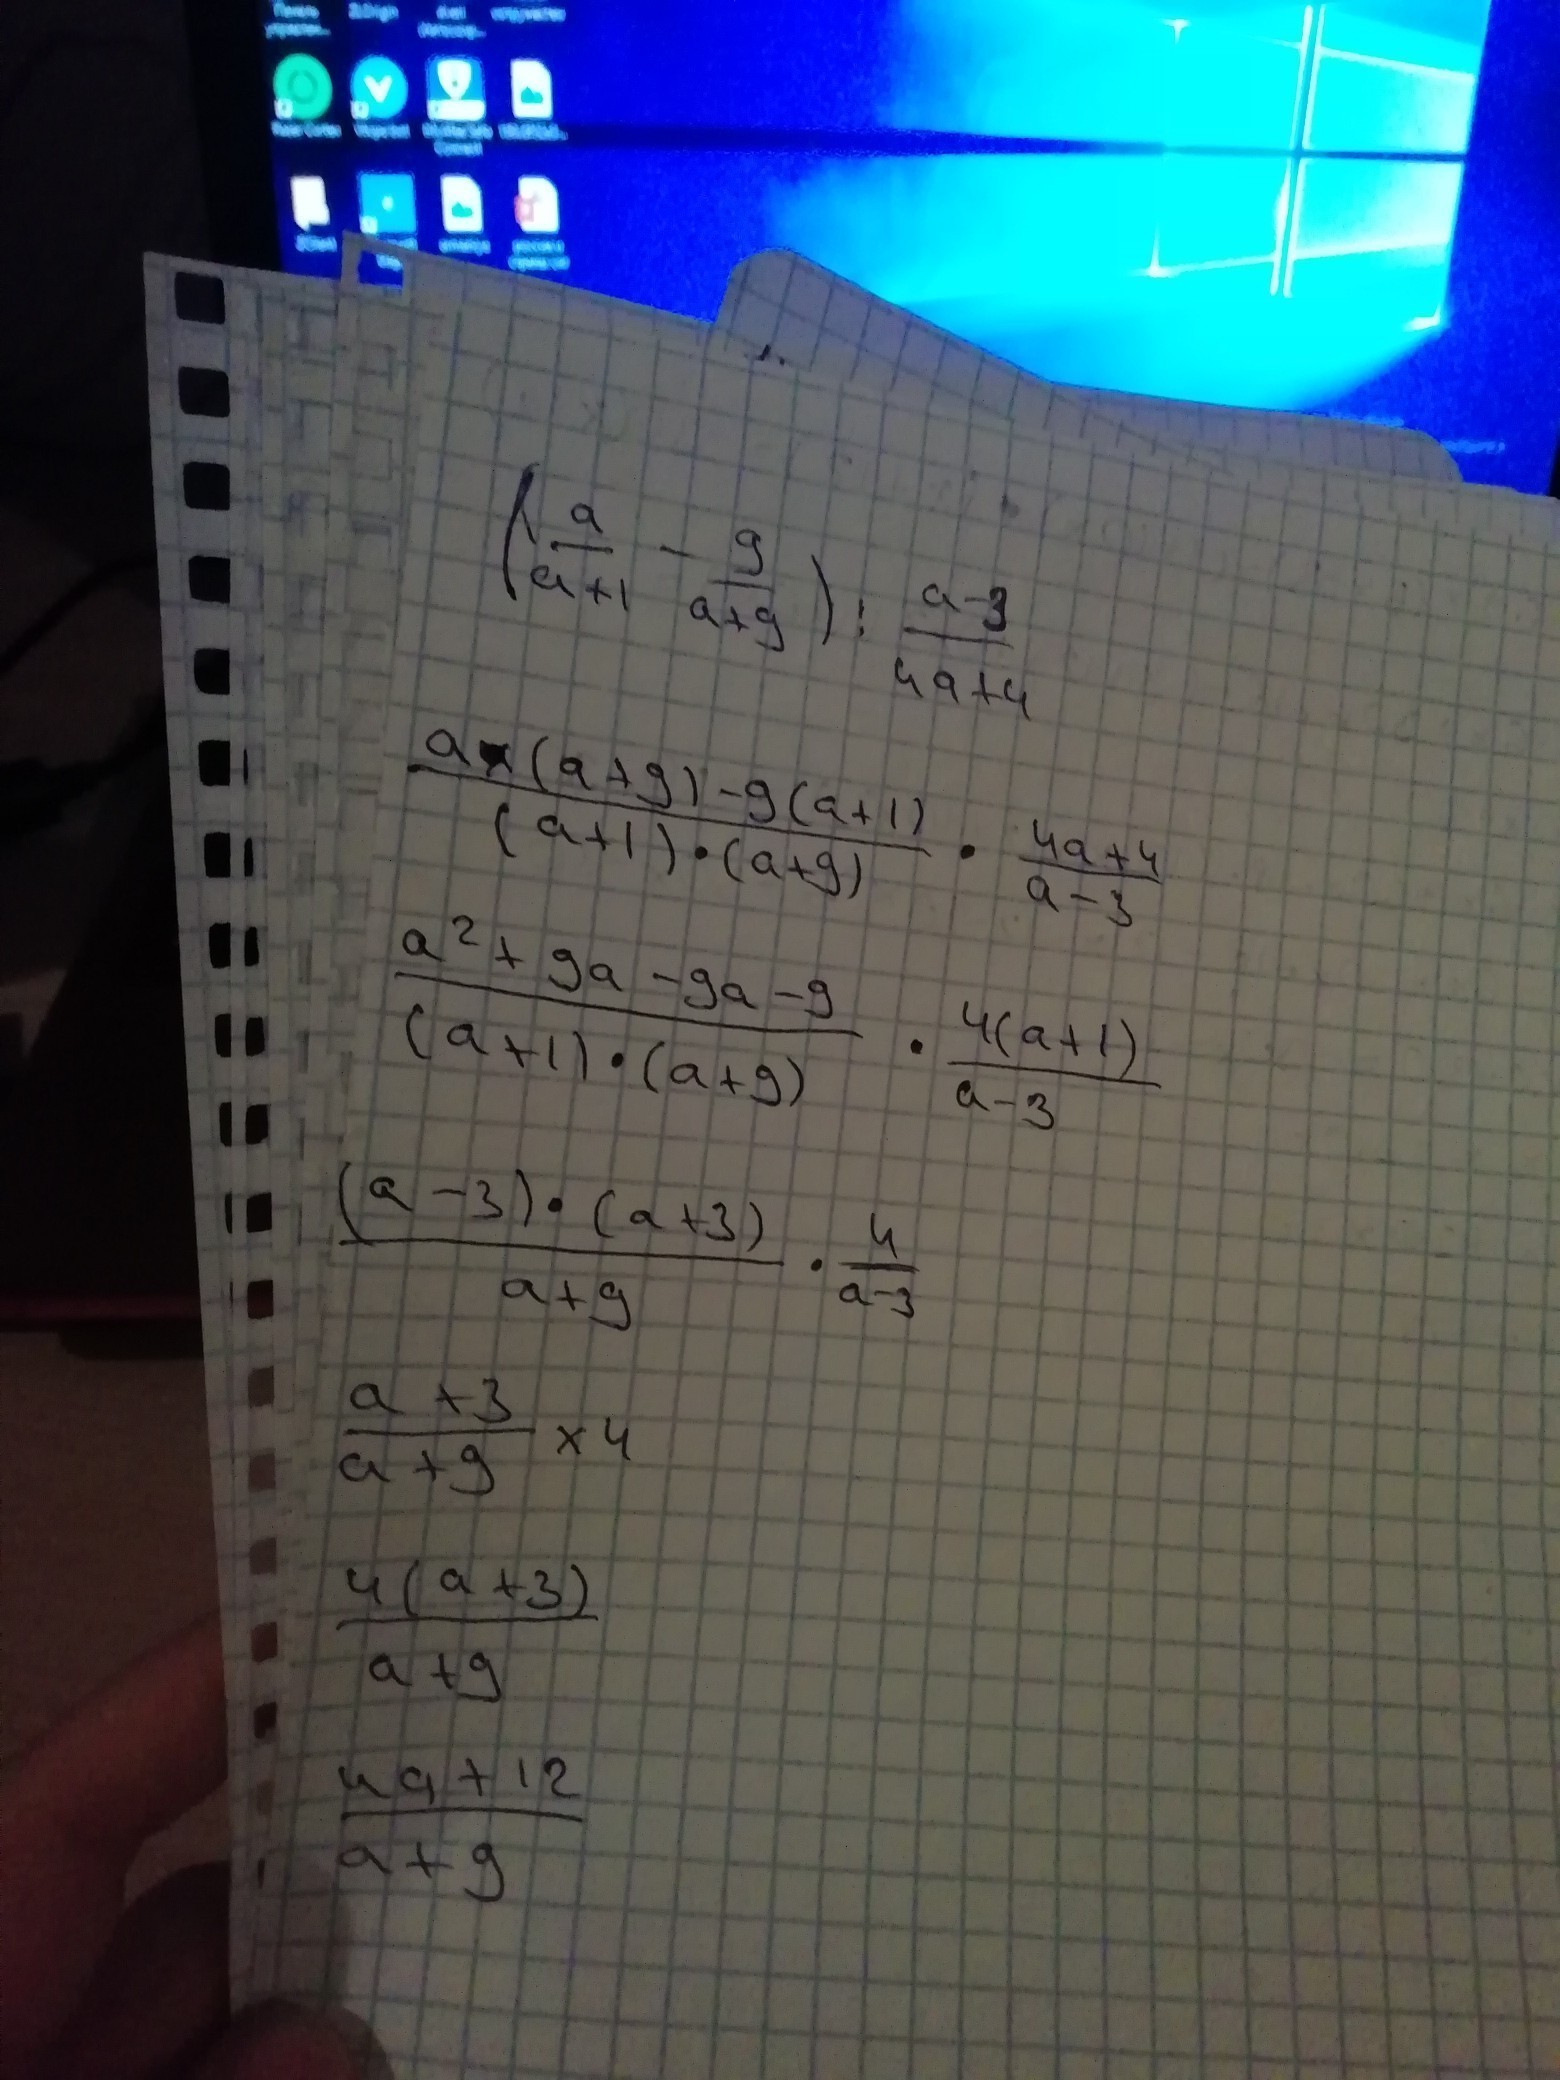 Панель
(a/(a+1) - 9/(a+9)) : (a-3)/(4a+4)
(a·(a+9)-9(a+1))/((a+1)·(a+9)) · (4a+4)/(a-3)
(a²+9a-9a-9)/((a+1)·(a+9)) · 4(a+1)/(a-3)
((a-3)·(a+3))/(a+9) · 4/(a-3)
(a+3)/(a+9) × 4
4(a+3)/(a+9)
(4a+12)/(a+9)